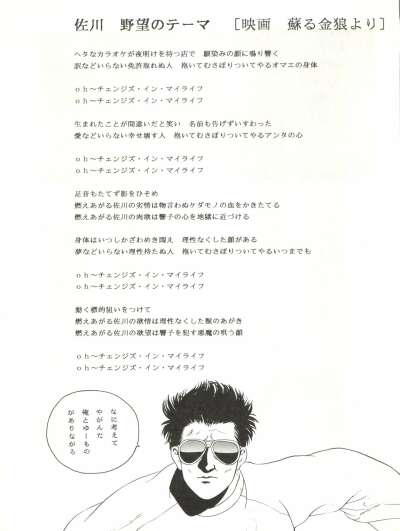 佐川　野望のテーマ　［映画　蘇る金狼より］
ヘタなカラオケが夜明けを待つ店で　顔染みの顔に鳴り響く
訳などいらない免許取れぬ人　抱いてむさぼりついてやるオマエの身体
ｏｈ～チェンジズ・イン・マイライフ
ｏｈ～チェンジズ・イン・マイライフ
生まれたことが間違いだと笑い　名前も告げずいすわった
愛などいらない幸せ壊す人　抱いてむさぼりついてやるアンタの心
ｏｈ～チェンジズ・イン・マイライフ
ｏｈ～チェンジズ・イン・マイライフ
足音もたてず影をひそめ
燃えあがる佐川の劣情は物言わぬケダモノの血をかきたてる
燃えあがる佐川の肉欲は響子の心を地獄に近づける
身体はいつしかざわめき悶え　理性なくした顔がある
夢などいらない理性持たぬ人　抱いてむさぼりついてやるいつまでも
ｏｈ～チェンジズ・イン・マイライフ
ｏｈ～チェンジズ・イン・マイライフ
動く標的狙いをつけて
燃えあがる佐川の欲情は理性なくした獣のあがき
燃えあがる佐川の欲望は響子を犯す悪魔の唄う顔
ｏｈ～チェンジズ・イン・マイライフ
ｏｈ～チェンジズ・イン・マイライフ
なに考えて
やがんだ
俺とゆーもの
がありながら